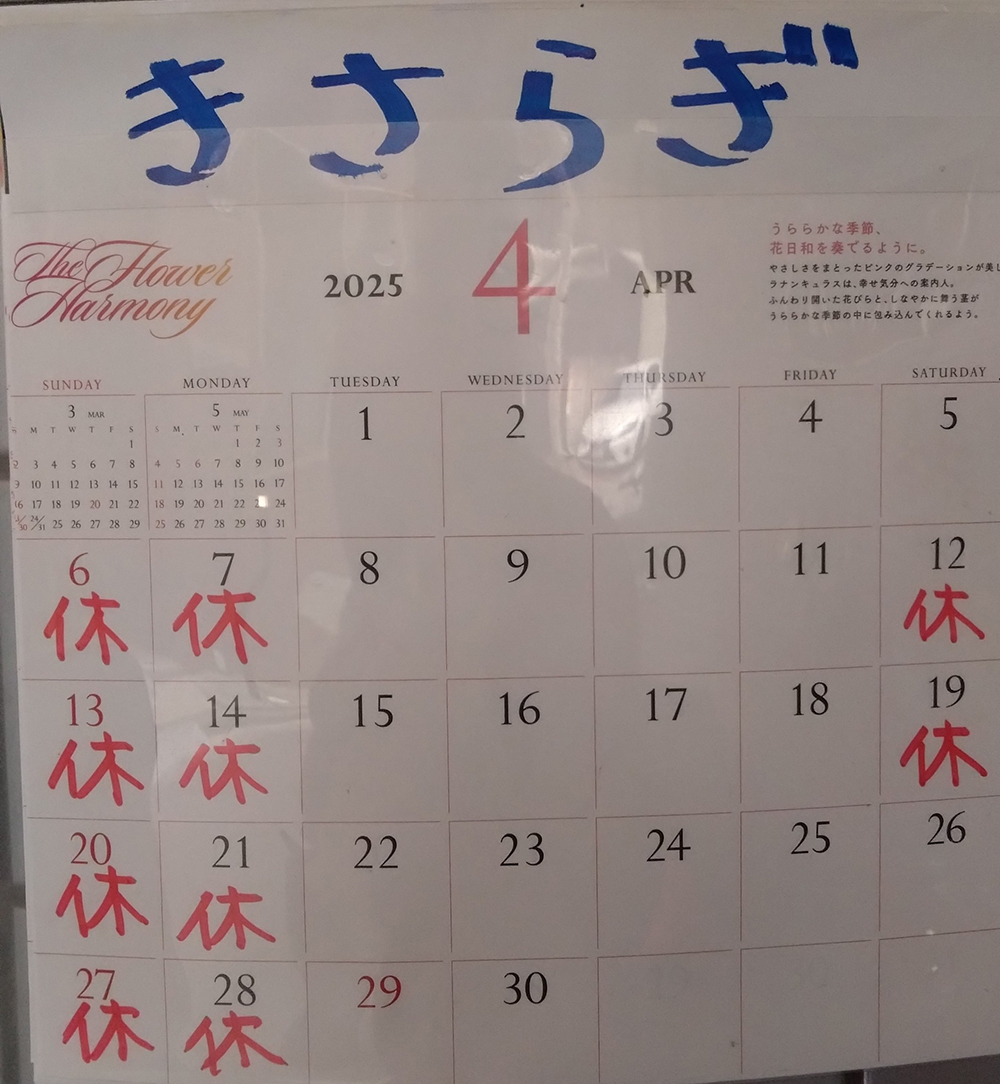 きさらぎ
The Flower
Harmony
2025 4 APR
うららかな季節、
花日和を奏でるように。
やさしさをまとったピンクのグラデーションが美し
ラナンキュラスは、幸せ気分への案内人。
ふんわり開いた花びらと、しなやかに舞う茎が
うららかな季節の中に包み込んでくれるよう。
SUNDAY MONDAY TUESDAY WEDNESDAY THURSDAY FRIDAY SATURDAY
3 MAR
M T W T F S
1
2 3 4 5 6 7 8
9 10 11 12 13 14 15
16 17 18 19 20 21 22
23/30 24/31 25 26 27 28 29
5 MAY
S M T W T F S
1 2 3
4 5 6 7 8 9 10
11 12 13 14 15 16 17
18 19 20 21 22 24
25 26 27 28 29 30 31
1 2 3 4 5
6 7 8 9 10 11 12
休 休 休
13 14 15 16 17 18 19
休 休 休
20 21 22 23 24 25 26
休 休
27 28 29 30
休 休